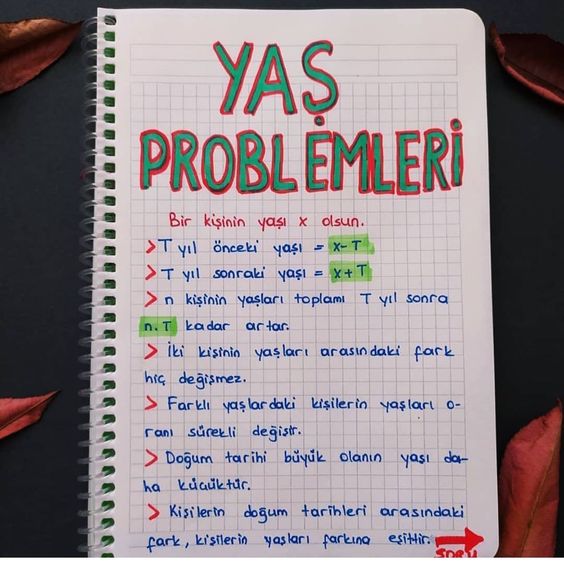 YAŞ
PROBLEMLERİ
Bir kişinin yaşı x olsun.
> T yıl önceki yaşı = x-T
> T yıl sonraki yaşı = x+T
> n kişinin yaşları toplamı T yıl sonra
n.T kadar artar.
> İki kişinin yaşları arasındaki fark
hiç değişmez.
> Farklı yaşlardaki kişilerin yaşları o-
ranı sürekli değişir.
> Doğum tarihi büyük olanın yaşı da-
ha küçüktür.
> Kişilerin doğum tarihleri arasındaki
fark, kişilerin yaşları farkına eşittir.
SORU